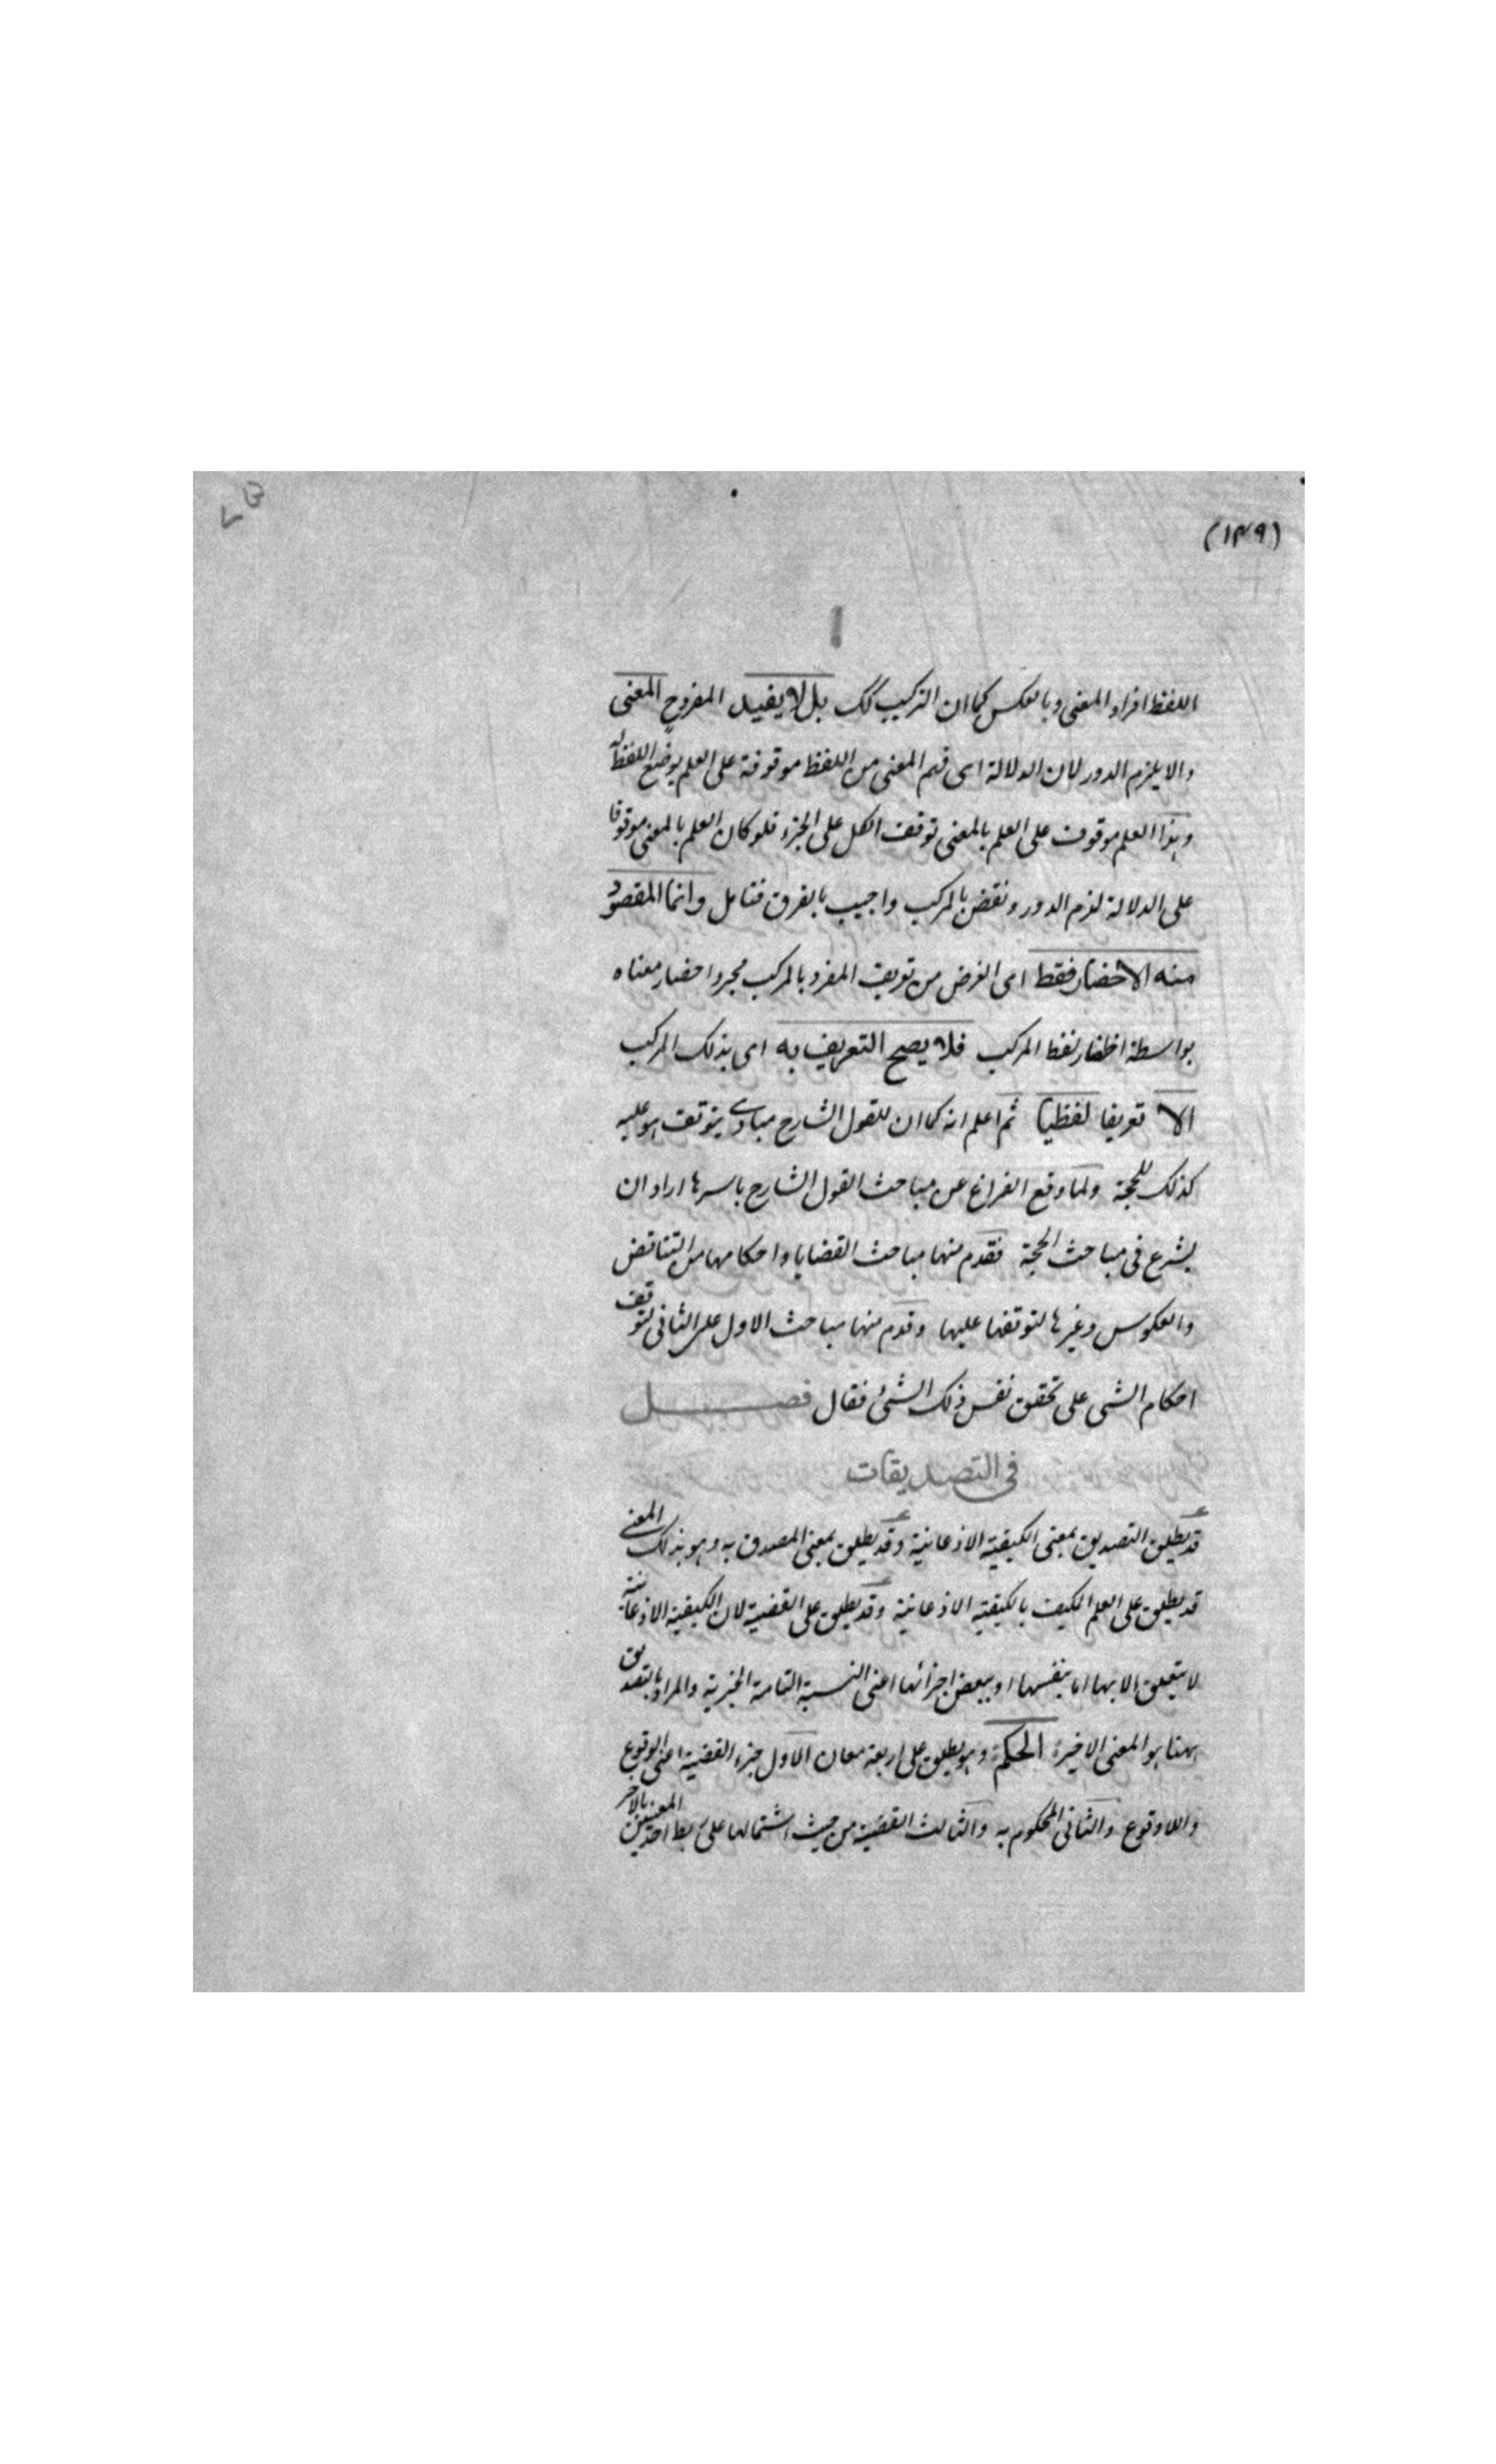 (١٣٩)
اللفظ افراد المعنى وبالعكس كما ان التركيب كك بل لا يفيد المفرد ح المعنى
والا يلزم الدور لان الدلالة اى فهم المعنى من اللفظ موقوفة على العلم بوضع اللفظ له
وهذا العلم موقوف على العلم بالمعنى توقف الكل على الجزء فلو كان العلم بالمعنى موقوفا
على الدلالة لزم الدور ونقض بالمركب واجيب بالفرق فتامل وانما المقصود
منه الاحضار فقط اى الغرض من تعريف المفرد بالمركب مجرد احضار معناه
بواسطة لفظ المركب فلا يصح التعريف به اى بذلك المركب
الا تعريفا لفظيا ثم اعلم انه كما ان للقول الشارح مبادى يتوقف هو عليه
كذلك للحجة ولما وقع الفراغ عن مباحث القول الشارح باسرها اراد ان
يشرع فى مباحث الحجة فقدم منها مباحث القضايا واحكامها من التناقض
والعكوس وغيرها لتوقفها عليها وقدم منها مباحث الاول على الثانى لتوقف
احكام الشى على تحقق نفس ذلك الشئ فقال فصل
فى التصديقات
قد يطلق التصديق بمعنى الكيفية الاذعانية وقد يطلق بمعنى المصدق به وهو بذلك المعنى
قد يطلق على العلم المكيف بالكيفية الاذعانية وقد يطلق على القضية لان الكيفية الاذعانية
لا يتعلق الا بها اما بنفسها او ببعض اجزائها اعنى النسبة التامة الخبرية والمراد بالتصديق
ههنا هو المعنى الاخير الحكم وهو يطلق على اربعة معان الاول جزء القضية اعنى الوقوع
واللاوقوع والثانى المحكوم به والثالث القضية من حيث اشتمالها على ربط احد المعنيين بالاخر